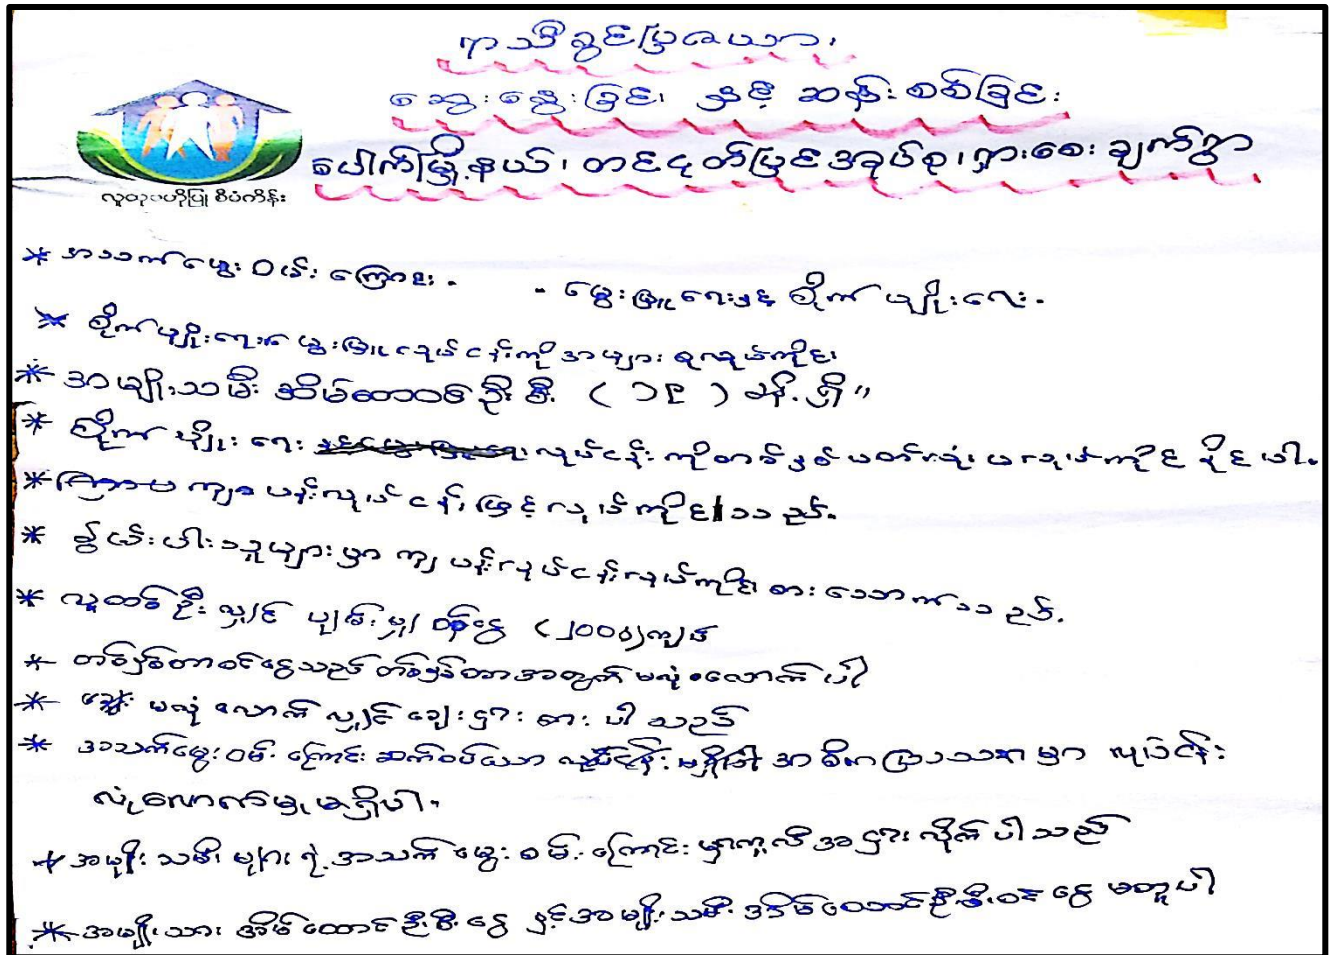 ရာသီခွင်ပြဇယား၊
ဆွေးနွေးခြင်း၊ နှင့် ဆန်းစစ်ခြင်း
ပေါက်မြို့နယ်၊ တင်ငုတ်ပြင်အုပ်စု၊ ရှားစေးချက်ရွာ
လူထုဗဟိုပြု စီမံကိန်း
* အသက်မွေးဝမ်းကြောင်း - - မွေးမြူရေးနှင့် စိုက်ပျိုးရေး -
* စိုက်ပျိုးရေး၊ မွေးမြူရေးလုပ်ငန်းကို အများစုလုပ်ကိုင်၊
* အမျိုးသမီး အိမ်ထောင်ဦးစီး (၁၉) ဦး ရှိ။
* စိုက်ပျိုးရေး လုပ်ငန်းကိုတစ်နှစ်ပတ်လုံး မလုပ်ကိုင်နိုင်ပါ။
* ကြားမှ ကျပန်းလုပ်ငန်းဖြင့် လုပ်ကိုင်သည်။
* နွမ်းပါးသူများမှာ ကျပန်းလုပ်ငန်းလုပ်ကိုင်စားသောက်သည်။
* လူတစ်ဦးလျှင် ပျမ်းမျှဝင်ငွေ (၂၀၀၀)ကျပ်
* တစ်နှစ်တာဝင်ငွေသည် တစ်နှစ်တာအတွက် မလုံလောက်ပါ
* မလုံလောက်လျှင် ချေးငှားစားပါသည်
* အသက်မွေးဝမ်းကြောင်း ဆက်စပ်သော လုပ်ငန်းမရှိပါ အဓိကပြဿနာမှာ လုပ်ငန်း
လုံလောက်မှုမရှိပါ။
* အမျိုးသမီးများရဲ့ အသက်မွေးဝမ်းကြောင်းမှာကူလီအငှားလိုက်ပါသည်
* အမျိုးသားအိမ်ထောင်ဦးစီးငွေ နှင့်အမျိုးသမီးအိမ်ထောင်ဦးစီးဝင်ငွေ မတူပါ